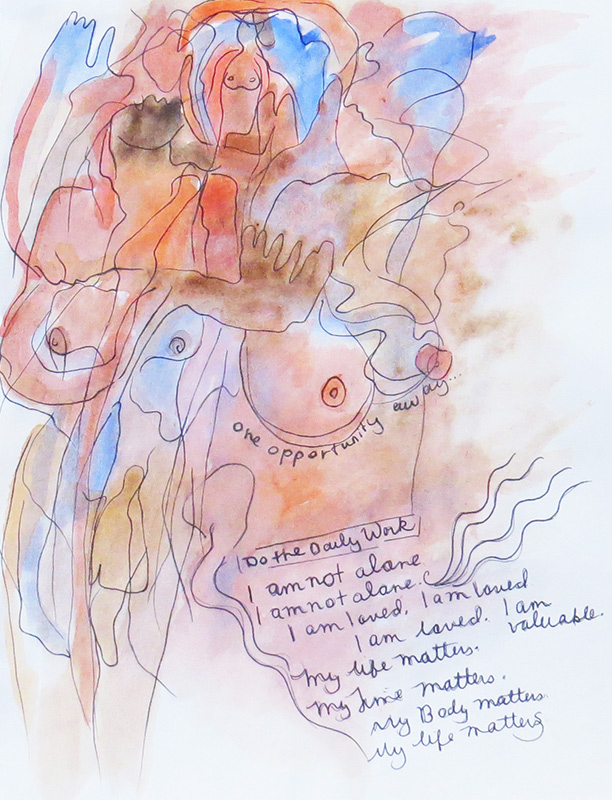 one opportunity away...
Do the Daily Work
I am not alone
I am not alone.
I am loved. I am loved
I am loved. I am
valuable.
My life matters.
My time matters.
My Body matters.
My life matters